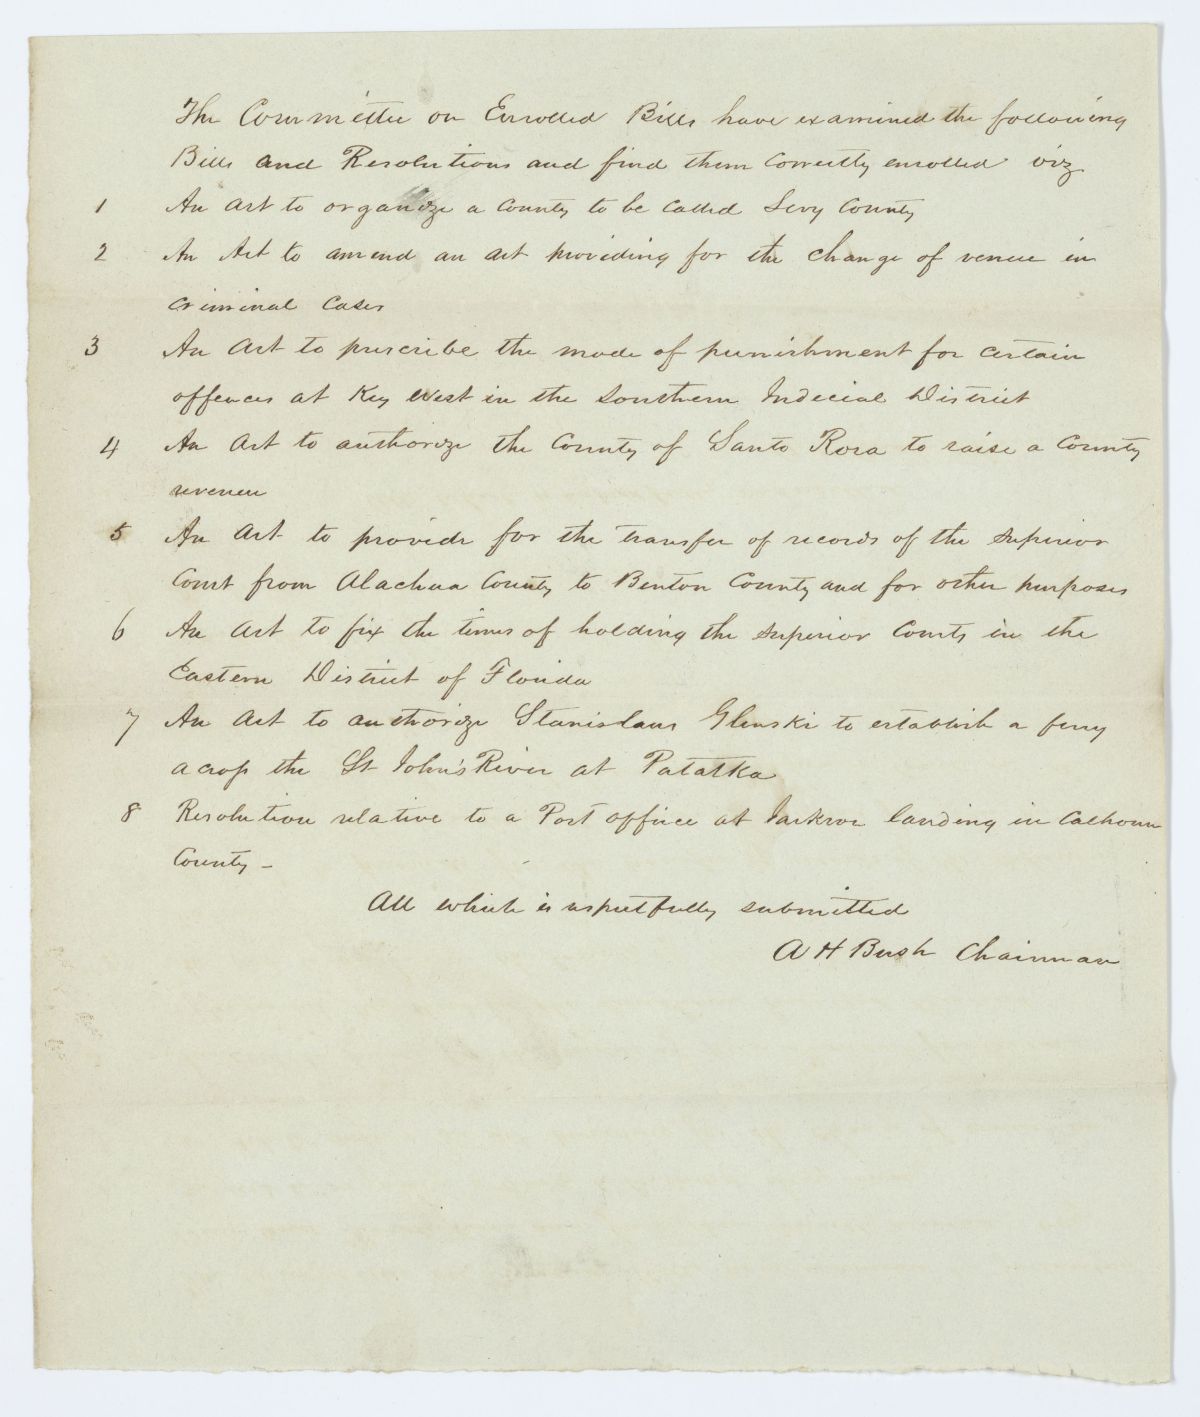 The Committee on Enrolled Bills have examined the following
Bills and Resolutions and find them correctly enrolled viz
1 An act to organize a County to be called Levy County
2 An Act to amend an act providing for the change of venue in
criminal cases
3 An Act to prescribe the mode of punishment for certain
offences at Key West in the Southern Judicial District
4 An Act to authorize the County of Santo Rosa to raise a County
revenue
5 An Act to provide for the transfer of records of the Superior
Court from Alachua County to Benton County and for other purposes
6 An Act to fix the times of holding the Superior Courts in the
Eastern District of Florida
7 An Act to authorize Stanislaus Glinski to establish a ferry
across the St John's River at Palatka
8 Resolution relative to a Post office at landing in Calhoun
County -
All which is respectfully submitted
A H Bush Chairman